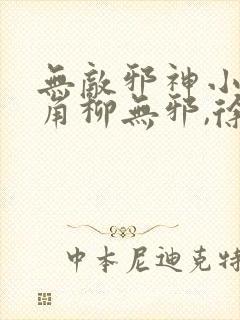 無敵邪神小
角柳無邪,徐
中本尼迪克特